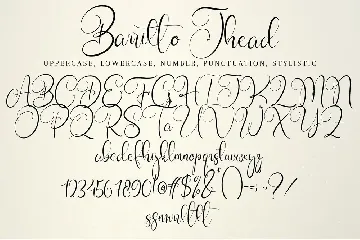 Barillto Thead
UPPERCASE, LOWERCASE, NUMBER, PUNCTUATION, STYLISTIC
ABCDEFGHIJKLMN
OPQRSTUVWXYZ
abcdefghijklmnopqrstuvwxyz
1234567890@#$%&()-=;:,?/